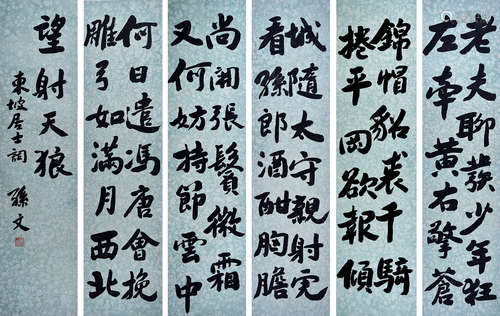 老夫聊發少年狂
左牽黃右擎蒼
錦帽貂裘千騎
捲平岡欲報傾
城隨太守親射虎
看孫郎酒酣胸膽
尚開張鬢微霜
又何妨持節雲中
何日遣馮唐會挽
雕弓如滿月西北
望射天狼
東坡居士詞 孫文